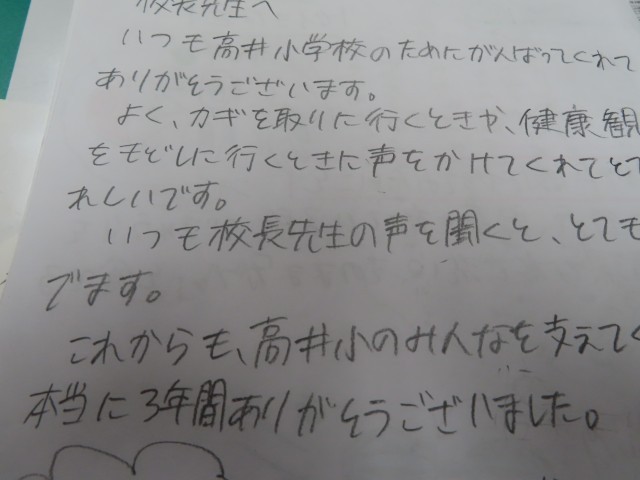 校長先生へ
いつも高井小学校のためにがんばってくれて
ありがとうございます。
よく、カギを取りに行くときや、健康観
をもどしに行くときに声をかけてくれてとて
れしいです。
いつも校長先生の声を聞くと、とても
でます。
これからも、高井小のみんなを支えてく
本当に3年間ありがとうございました。